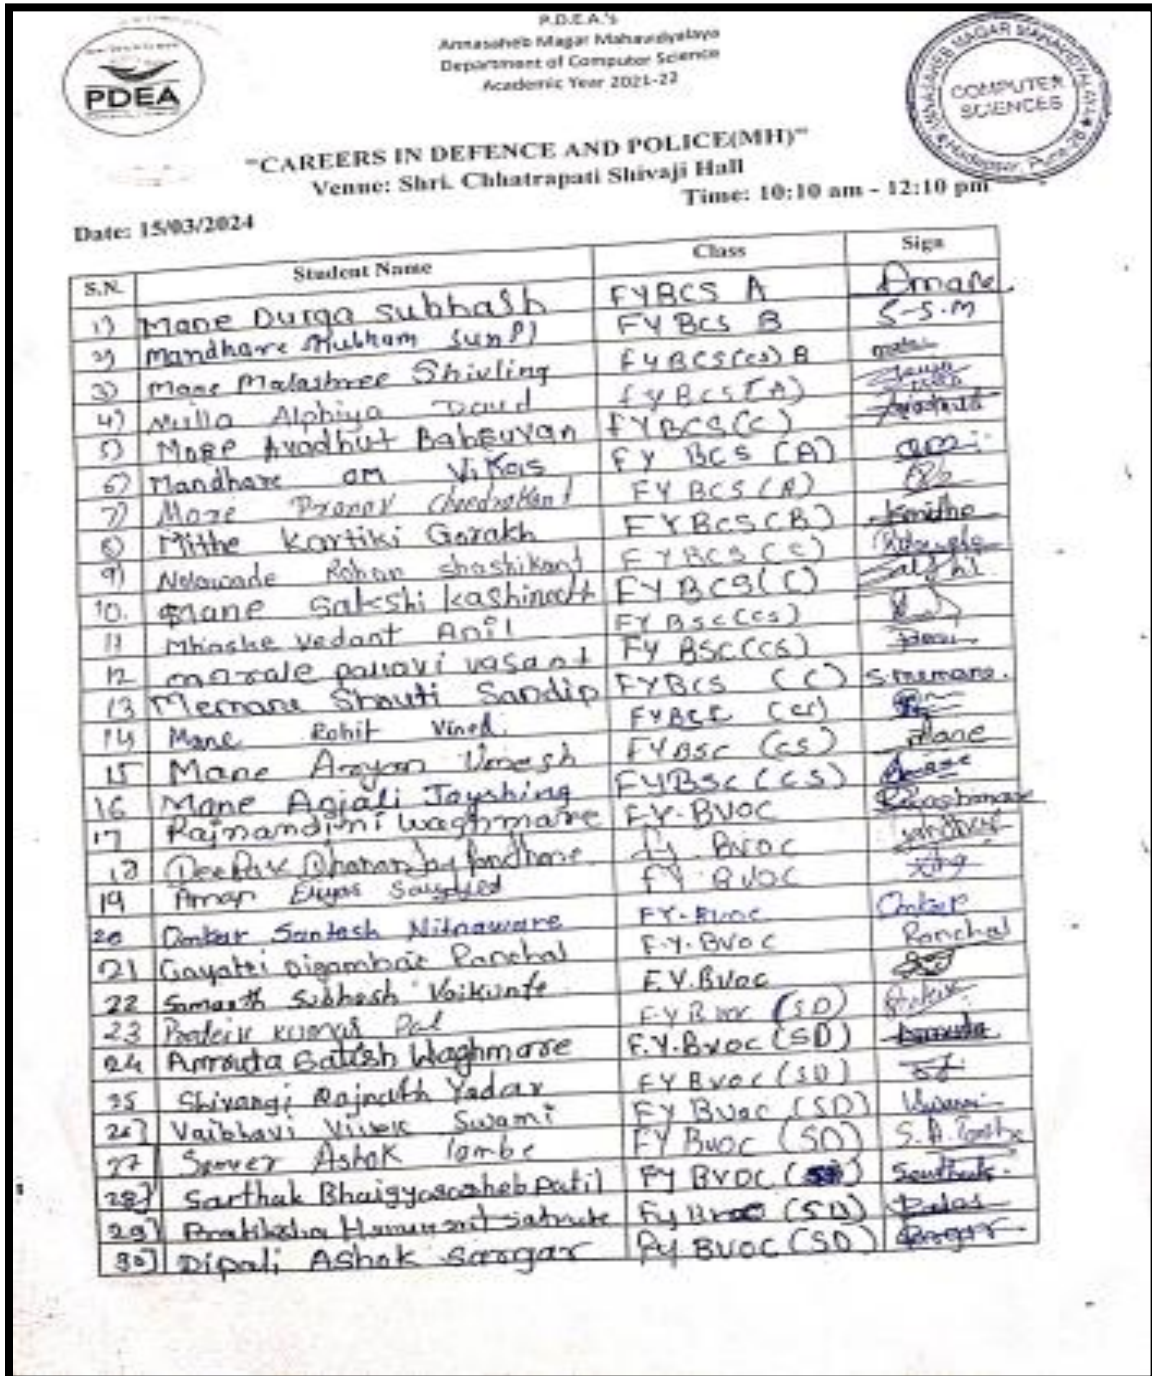 P.D.E.A.'s
Annasaheb Magar Mahavidyalaya
Department of Computer Science
Academic Year 2021-22
PDEA
COMPUTER
SCIENCES
"CAREERS IN DEFENCE AND POLICE(MH)"
Venue: Shri. Chhatrapati Shivaji Hall
Time: 10:10 am - 12:10 pm
Date: 15/03/2024
S.N. Student Name Class Sign
1) Mane Durga Subhash FYBCS A Dmane
2) Mandhare Shubham Sunil FYBCS B S-S.M
3) Mane Malashree Shivling FYBCS(CS) B
4) Mulla Alphiya Daud FYBCS(A)
5) More Avadhut Babruvan FYBCS(C) Avadhut
6) Mandhare om Vikas FY BCS (A)
7) More Pranav Chandrakant FYBCS(A)
8) Mithe Kartiki Gorakh FYBCS(B) Kmithe
9) Nalawade Rohan Shashikant FYBCS(C)
10. Mane Sakshi Kashinath FYBCS(C)
11 Mhaske Vedant Anil FYBSC(CS)
12 morale pallavi vasant FY BSC(CS)
13 Memane Shruti Sandip FYBCS (C) S.memane.
14 Mane Rohit Vinod. FYBCS (CS)
15 Mane Aryan Umesh FYBSC (CS) Mane
16 Mane Anjali Jayshing FYBSC (CS)
17 Rajnandini Waghmare F.Y-BVOC
18 Deepak Dhananjay Pandhare F.Y. BVOC
19 Aman Sayyed FY. BVOC
20 Omkar Santosh Nitnaware FY-BVOC Omkar
21 Gayatri Digambar Panchal F.Y.BVOC Panchal
22 Samarth Subhash Vaikunte F.Y.BVOC
23 Prateik Kumar Pal FYBVOC (SD)
24 Amruta Satish Waghmare F.Y.BVOC (SD) Amruta
25 Shivangi Rajnath Yadav FY BVOC (SD)
26] Vaibhavi Vivek Swami FY BVOC (SD) Vswami
27 Ashok Tombe FY BVOC (SD)
28] Sarthak Bhaigyasaheb Patil FY BVOC Sarthak.
29] Pratiksha Hanumant Satpute FY BVOC (SD)
30] Dipali Ashok Sargar FY BVOC (SD) Sargar